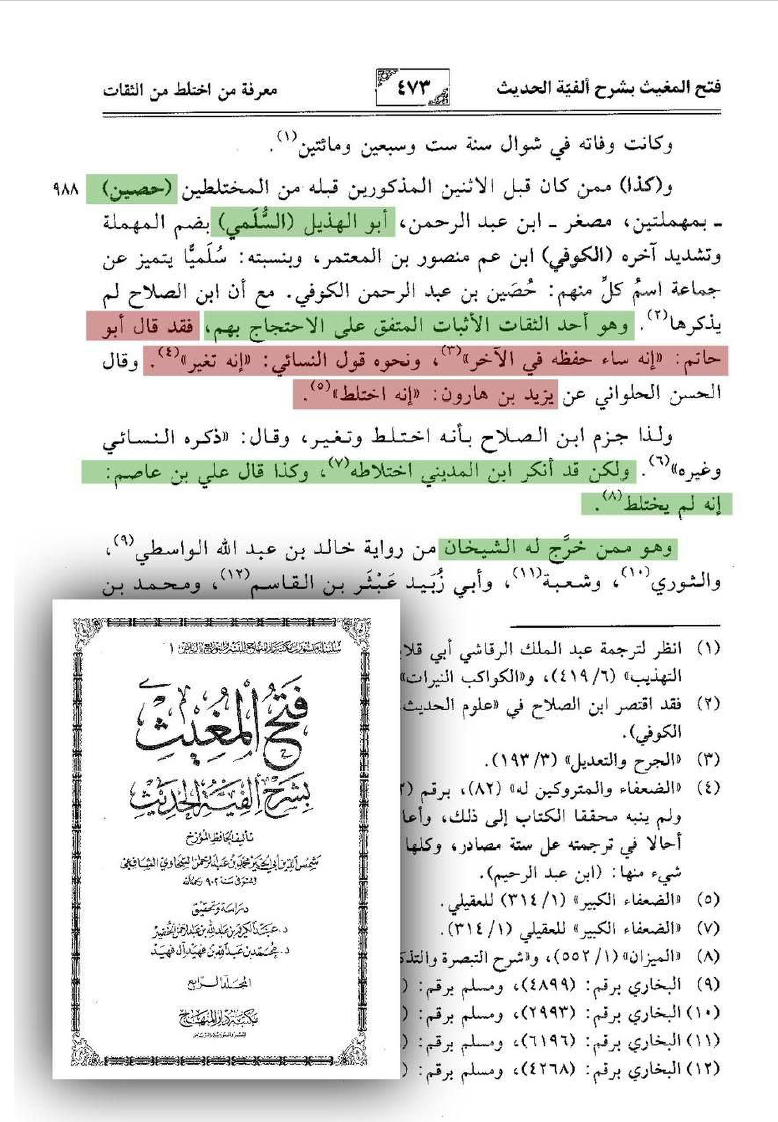 فتح المغيث بشرح ألفيّة الحديث
٤٧٣
معرفة من اختلط من الثقات
وكانت وفاته في شوال سنة ست وسبعين ومائتين(١).
و(كذا) ممن كان قبل الاثنين المذكورين قبله من المختلطين (حصين) ٩٨٨
ـ بمهملتين، مصغر ـ ابن عبد الرحمن، أبو الهذيل (السُّلَمي) بضم المهملة
وتشديد آخره (الكوفي) ابن عم منصور بن المعتمر، وبنسبته: سُلَميًّا يتميز عن
جماعة اسمُ كلٍّ منهم: حُصَين بن عبد الرحمن الكوفي. مع أن ابن الصلاح لم
يذكرها(٢). وهو أحد الثقات الأثبات المتفق على الاحتجاج بهم، فقد قال أبو
حاتم: «إنه ساء حفظه في الآخر»(٣)، ونحوه قول النسائي: «إنه تغير»(٤). وقال
الحسن الحلواني عن يزيد بن هارون: «إنه اختلط»(٥).
ولذا جزم ابن الصلاح بأنه اختلط وتغير، وقال: «ذكره النسائي
وغيره»(٦). ولكن قد أنكر ابن المديني اختلاطه(٧)، وكذا قال علي بن عاصم:
إنه لم يختلط(٨).
وهو ممن خرَّج له الشيخان من رواية خالد بن عبد الله الواسطي(٩)،
والثوري(١٠)، وشعبة(١١)، وأبي زُبَيد عَبْثَر بن القاسم(١٢)، ومحمد بن
(١) انظر لترجمة عبد الملك الرقاشي أبي قلاب
التهذيب» (٤١٩/٦)، و«الكواكب النيرات»
(٢) فقد اقتصر ابن الصلاح في «علوم الحديث
الكوفي).
(٣) «الجرح والتعديل» (١٩٣/٣).
(٤) «الضعفاء والمتروكين له» (٨٢)، برقم (
ولم ينبه محققا الكتاب إلى ذلك، وأعا
أحالا في ترجمته على ستة مصادر، وكلها
شيء منها: (ابن عبد الرحيم).
(٥) «الضعفاء الكبير» (٣١٤/١) للعقيلي.
(٧) «الضعفاء الكبير» للعقيلي (٣١٤/١).
(٨) «الميزان» (٥٥٢/١)، و«شرح التبصرة والتذك
(٩) البخاري برقم: (٤٨٩٩)، ومسلم برقم: (
(١٠) البخاري برقم: (٢٩٩٣)، ومسلم برقم: (
(١١) البخاري برقم: (٦١٩٦)، ومسلم برقم: (
(١٢) البخاري برقم: (٤٢٦٨)، ومسلم برقم: (
فتح المغيث
بشرح ألفية الحديث
تأليف الحافظ المؤرخ
شمس الدين أبي الخير محمد بن عبد الرحمن السخاوي الشافعي
المتوفى سنة ٩٠٢ رحمه الله
دراسة وتحقيق
د. عبد الكريم بن عبد الله بن عبد الرحمن الخضير
د. محمد بن عبد الله بن فهيد آل فهيد
المجلد الرابع
مكتبة دار المنهاج